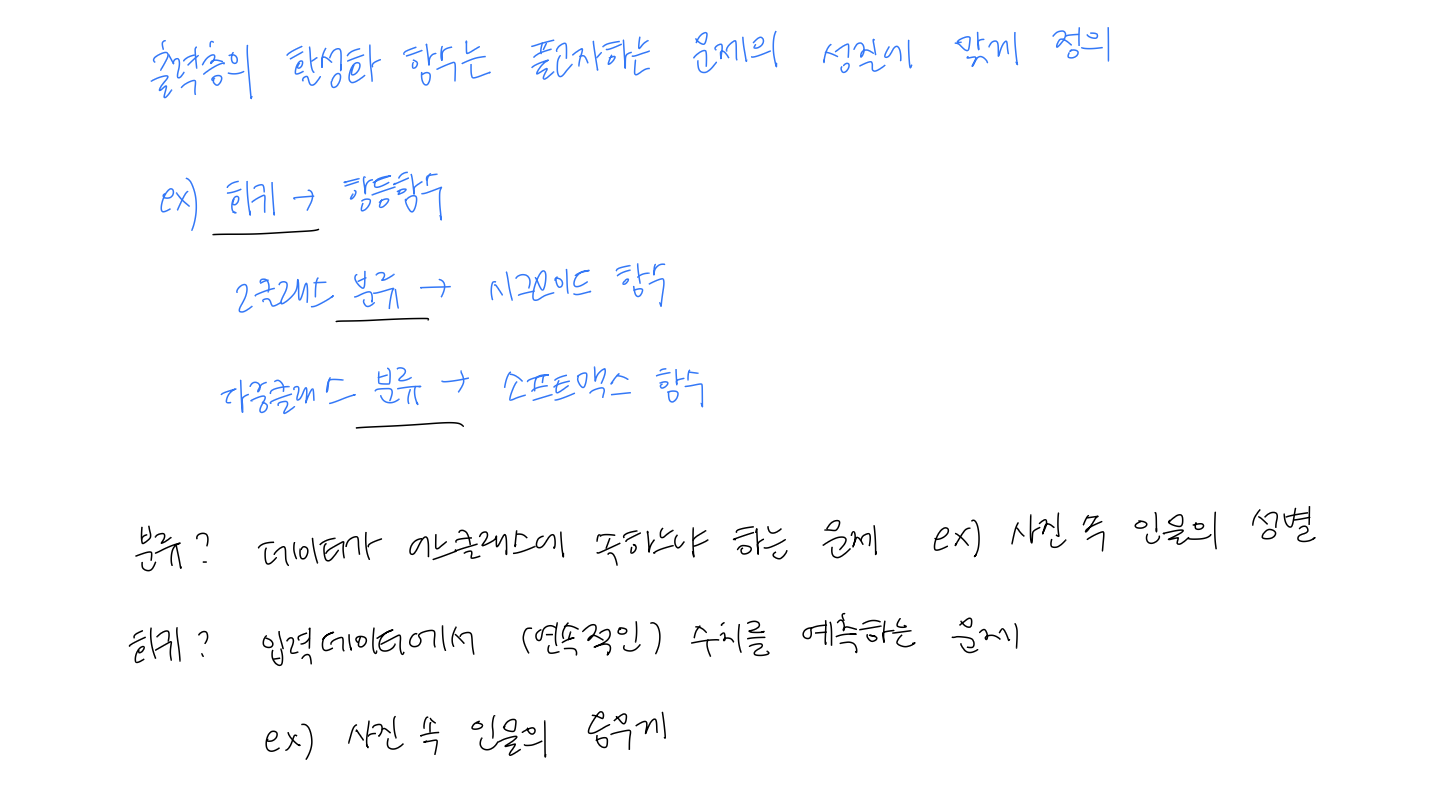 출력층의 활성화 함수는 풀고자하는 문제의 성질에 맞게 정의
ex) 회귀 → 항등함수
2클래스 분류 → 시그모이드 함수
다중클래스 분류 → 소프트맥스 함수
분류? 데이터가 어느클래스에 속하느냐 하는 문제 ex) 사진 속 인물의 성별
회귀? 입력데이터에서 (연속적인) 수치를 예측하는 문제
ex) 사진 속 인물의 몸무게